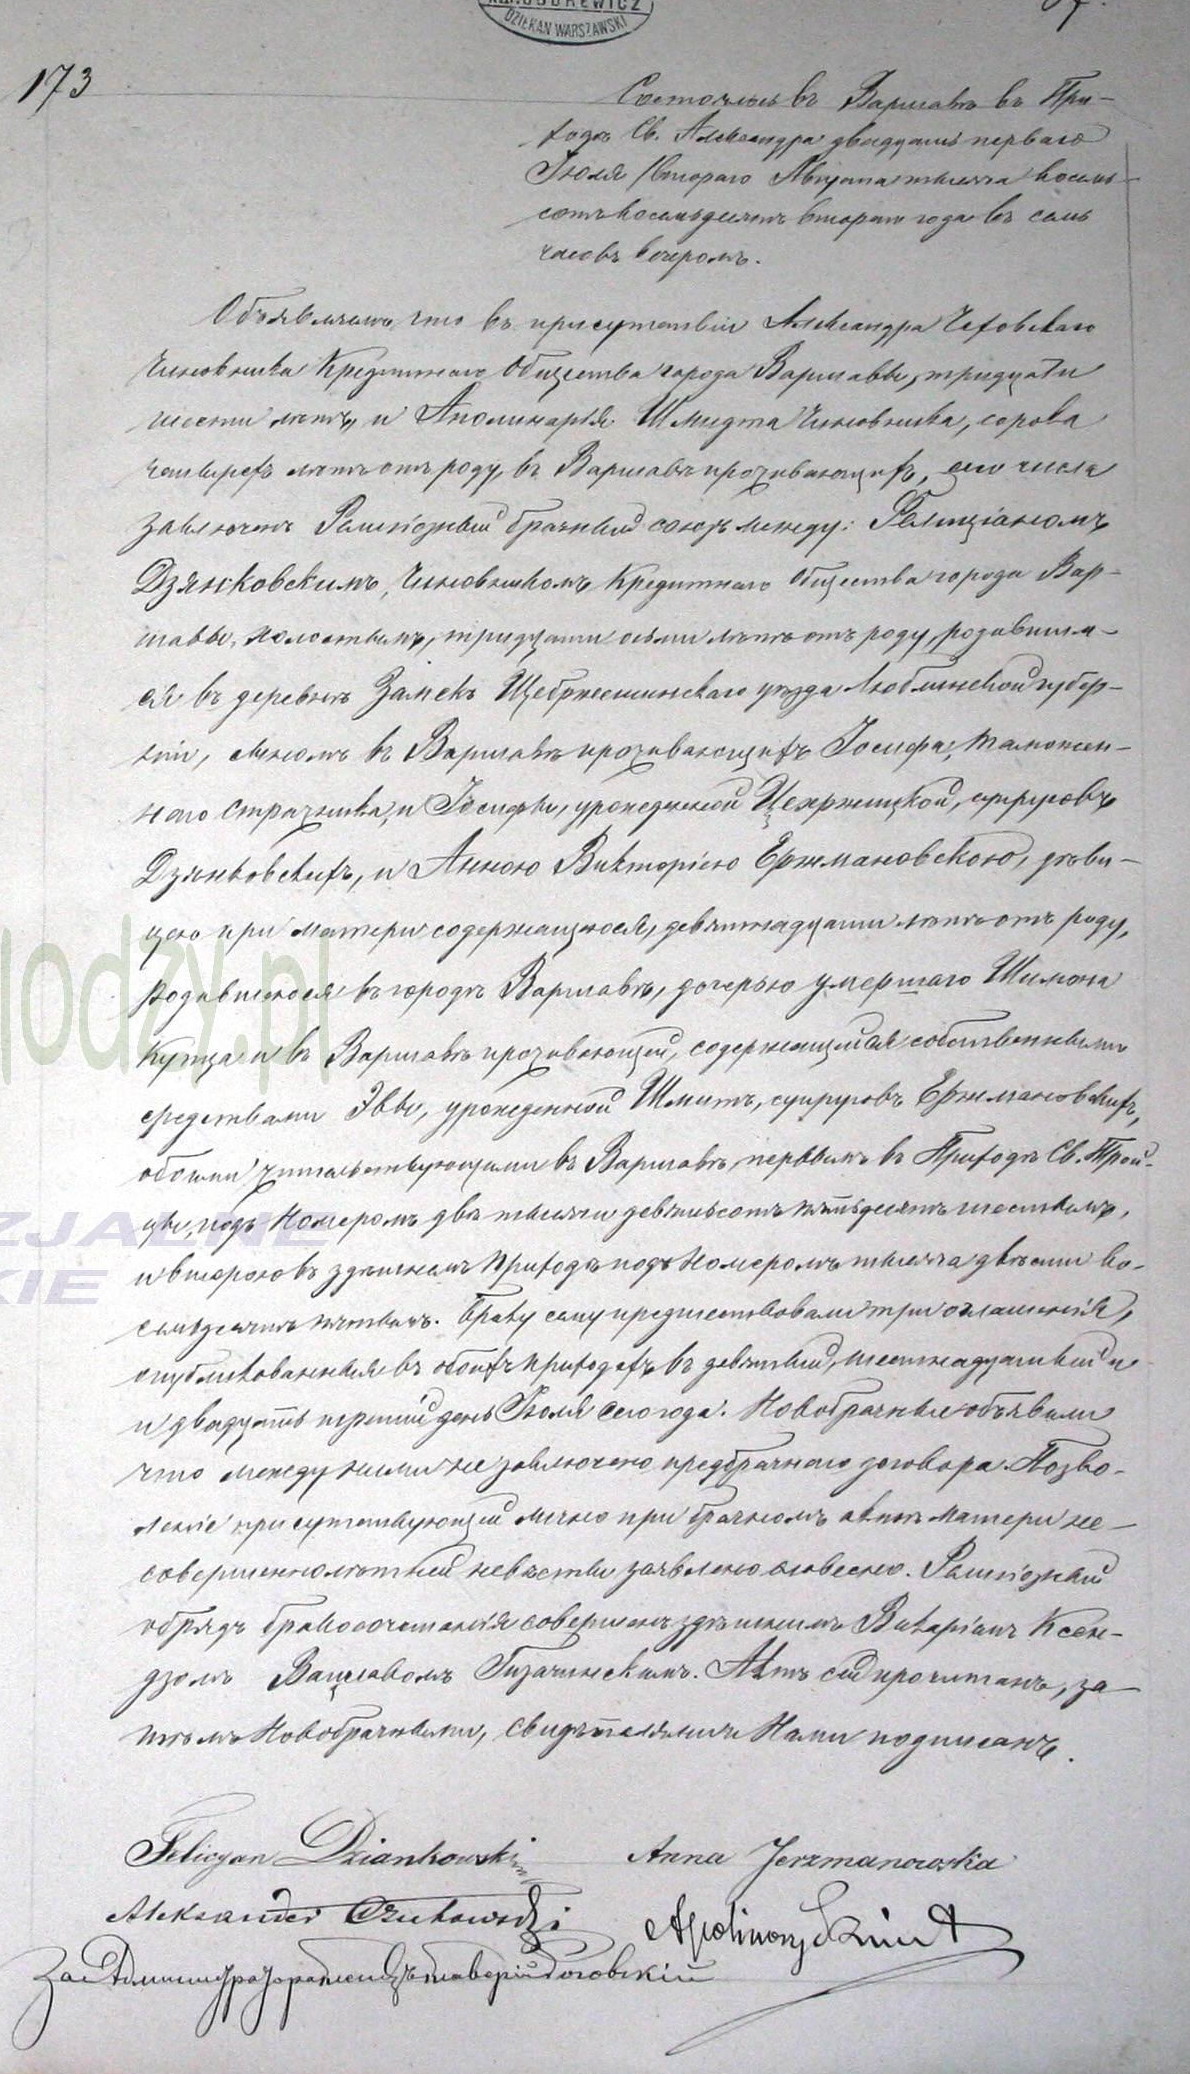 DZIEKAN WARSZAWSKI
173
Состоялось въ Варшавѣ въ При-
ходѣ Св. Александра двадцать перваго
Іюля /втораго Августа тысяча восемь-
сотъ восемьдесятъ втораго года въ семь
часовъ вечеромъ.
Объявляемъ что въ присутствіи Александра Чеховскаго
Чиновника Кредитнаго Общества города Варшавы, тридцати
шести лѣтъ, и Аполинарія Шмидта Чиновника, сорока
четырехъ лѣтъ отъ роду, въ Варшавѣ проживающихъ, сего числа
заключенъ Религіозный брачный союзъ между: Фелиціаномъ
Дзянковскимъ, Чиновникомъ Кредитнаго Общества города Вар-
шавы, холостымъ, тридцати осьми лѣтъ отъ роду, родившим-
ся въ деревнѣ Замекъ Щебржешинскаго уѣзда Люблинской губер-
ніи, сыномъ въ Варшавѣ проживающихъ Іосифа, таможен-
наго стражника, и Іосифы, урожденной, супруговъ
Дзянковскихъ, и Анною Викторіею Ержмановскою, дѣви-
цею при матери содержащеюся, девятнадцати лѣтъ отъ роду,
родившеюся въ городѣ Варшавѣ, дочерью умершаго Шимона
Купца и въ Варшавѣ проживающей, содержащейся собственными
средствами Эввы, урожденной Шмитъ, супруговъ Ержмановскихъ,
обоими жительствующими въ Варшавѣ, первымъ въ Приходѣ Св. Трой-
цы, подъ Номеромъ двѣ тысячи девятьсотъ пятьдесятъ шестымъ,
и второю въ здѣшнемъ Приходѣ подъ Номеромъ тысяча двѣсти во-
семьдесятъ пятымъ. Браку сему предшествовали три оглашенія,
опубликованныя въ обоихъ приходахъ въ девятый, шестнадцатый и
и двадцать третій день Іюля сего года. Новобрачные объявили
что между ними не заключено предбрачнаго договора. Позво-
леніе присутствующей лично при брачномъ актѣ матери не-
совершеннолѣтней невѣсты заявлено словесно. Религіозный
обрядъ бракосочетанія совершенъ здѣшнимъ Викаріемъ Ксен-
дзомъ Вацлавомъ. Актъ сей прочитанъ, за-
тѣмъ Новобрачными, Свидѣтелями и Нами подписанъ.
Felicyan Dziankowski Anna Jerzmanowska
Aleksander Czechowski Apolinary Szmidt
За Администратора
lodzy.pl
ZJALNE
KIE